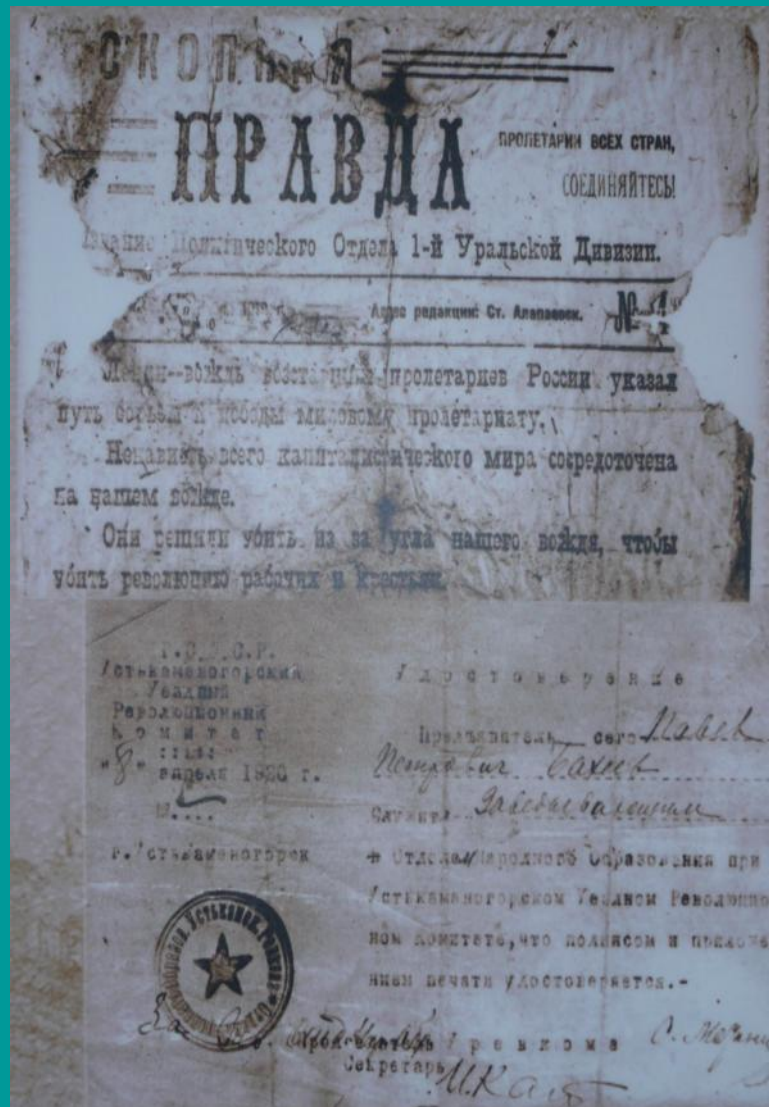 ОКОПНАЯ
ПРАВДА
ПРОЛЕТАРИИ ВСЕХ СТРАН,
СОЕДИНЯЙТЕСЬ!
Издание Политического Отдела 1-й Уральской Дивизии.
Адрес редакции: Ст. Алапаевск. № 4
Ленин--вождь возставших пролетариев России указал
путь борьбы и победы мировому пролетариату.
Ненависть всего капиталистического мира сосредоточена
на нашем вожде.
Они решили убить из за угла нашего вождя, чтобы
убить революцию рабочих и крестьян.
Р.С.Ф.С.Р.
Устькаменогорский
Уездный
Революционный
Комитет
"8" апреля 1920 г.
№....
г. Устькаменогорск
Удостоверение
Предъявитель сего Павел
Петрович Бахеев
Служит Заведывающим
в Отделам Народного Образования при
Устькаменогорском Уездном Революцио
ном Комитете, что подписом и приложе
нием печати удостоверяется.-
За
Председатель Ревкома
Секретарь